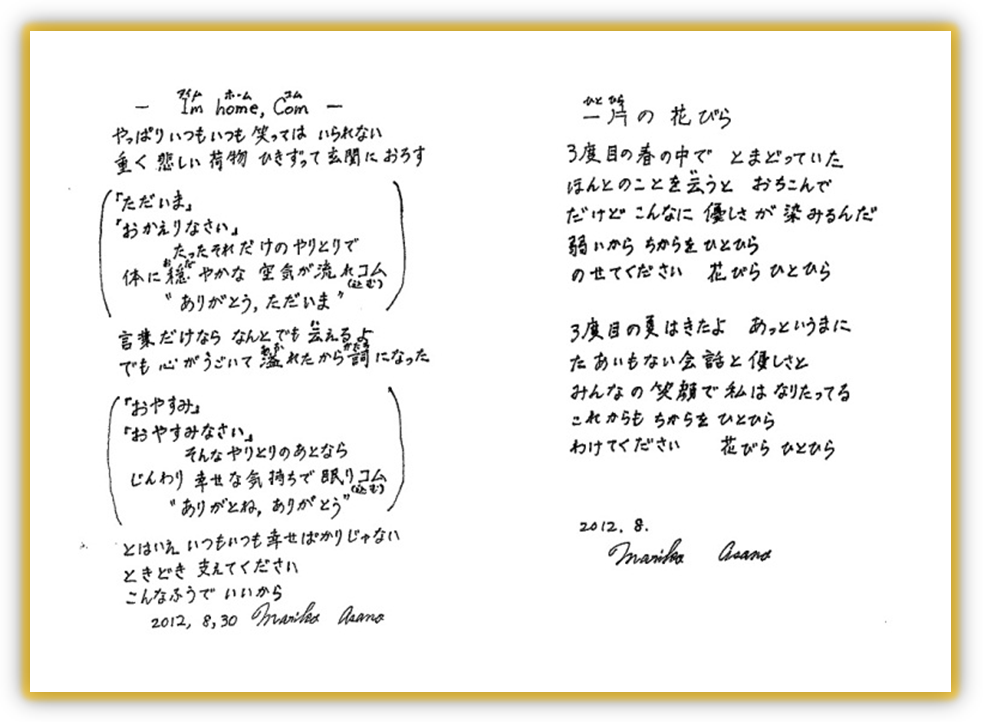 ― Im home, Com ―
アイム ホーム コム
やっぱりいつもいつも 笑っては いられない
重く 悲しい 荷物 ひきずって 玄関に おろす
「ただいま」
「おかえりなさい」
たったそれだけのやりとりで
体に 穏やかな 空気が 流れコム
おだ
(込む)
"ありがとう, ただいま"
言葉だけなら なんとでも 云えるよ
い
でも 心がうごいて 溢れたから 詞になった
あふ
かたち
「おやすみ」
「おやすみなさい」
そんなやりとりのあとなら
じんわり 幸せな気持ちで 眠りコム
(込む)
"ありがとね, ありがとう"
とはいえ いつもいつも 幸せばかりじゃない
ときどき 支えてください
こんなふうで いいから
2012, 8,30 Mariko Asano
一片の 花びら
ひと ひら
3度目の春の中で とまどっていた
ほんとのことを 云うと おちこんで
い
だけど こんなに 優しさが 染みるんだ
弱いから ちからを ひとひら
のせてください 花びら ひとひら
3度目の夏はきたよ あっというまに
たあいもない 会話と 優しさと
みんなの 笑顔で 私は なりたってる
これからも ちからを ひとひら
わけてください 花びら ひとひら
2012. 8.
Mariko Asano